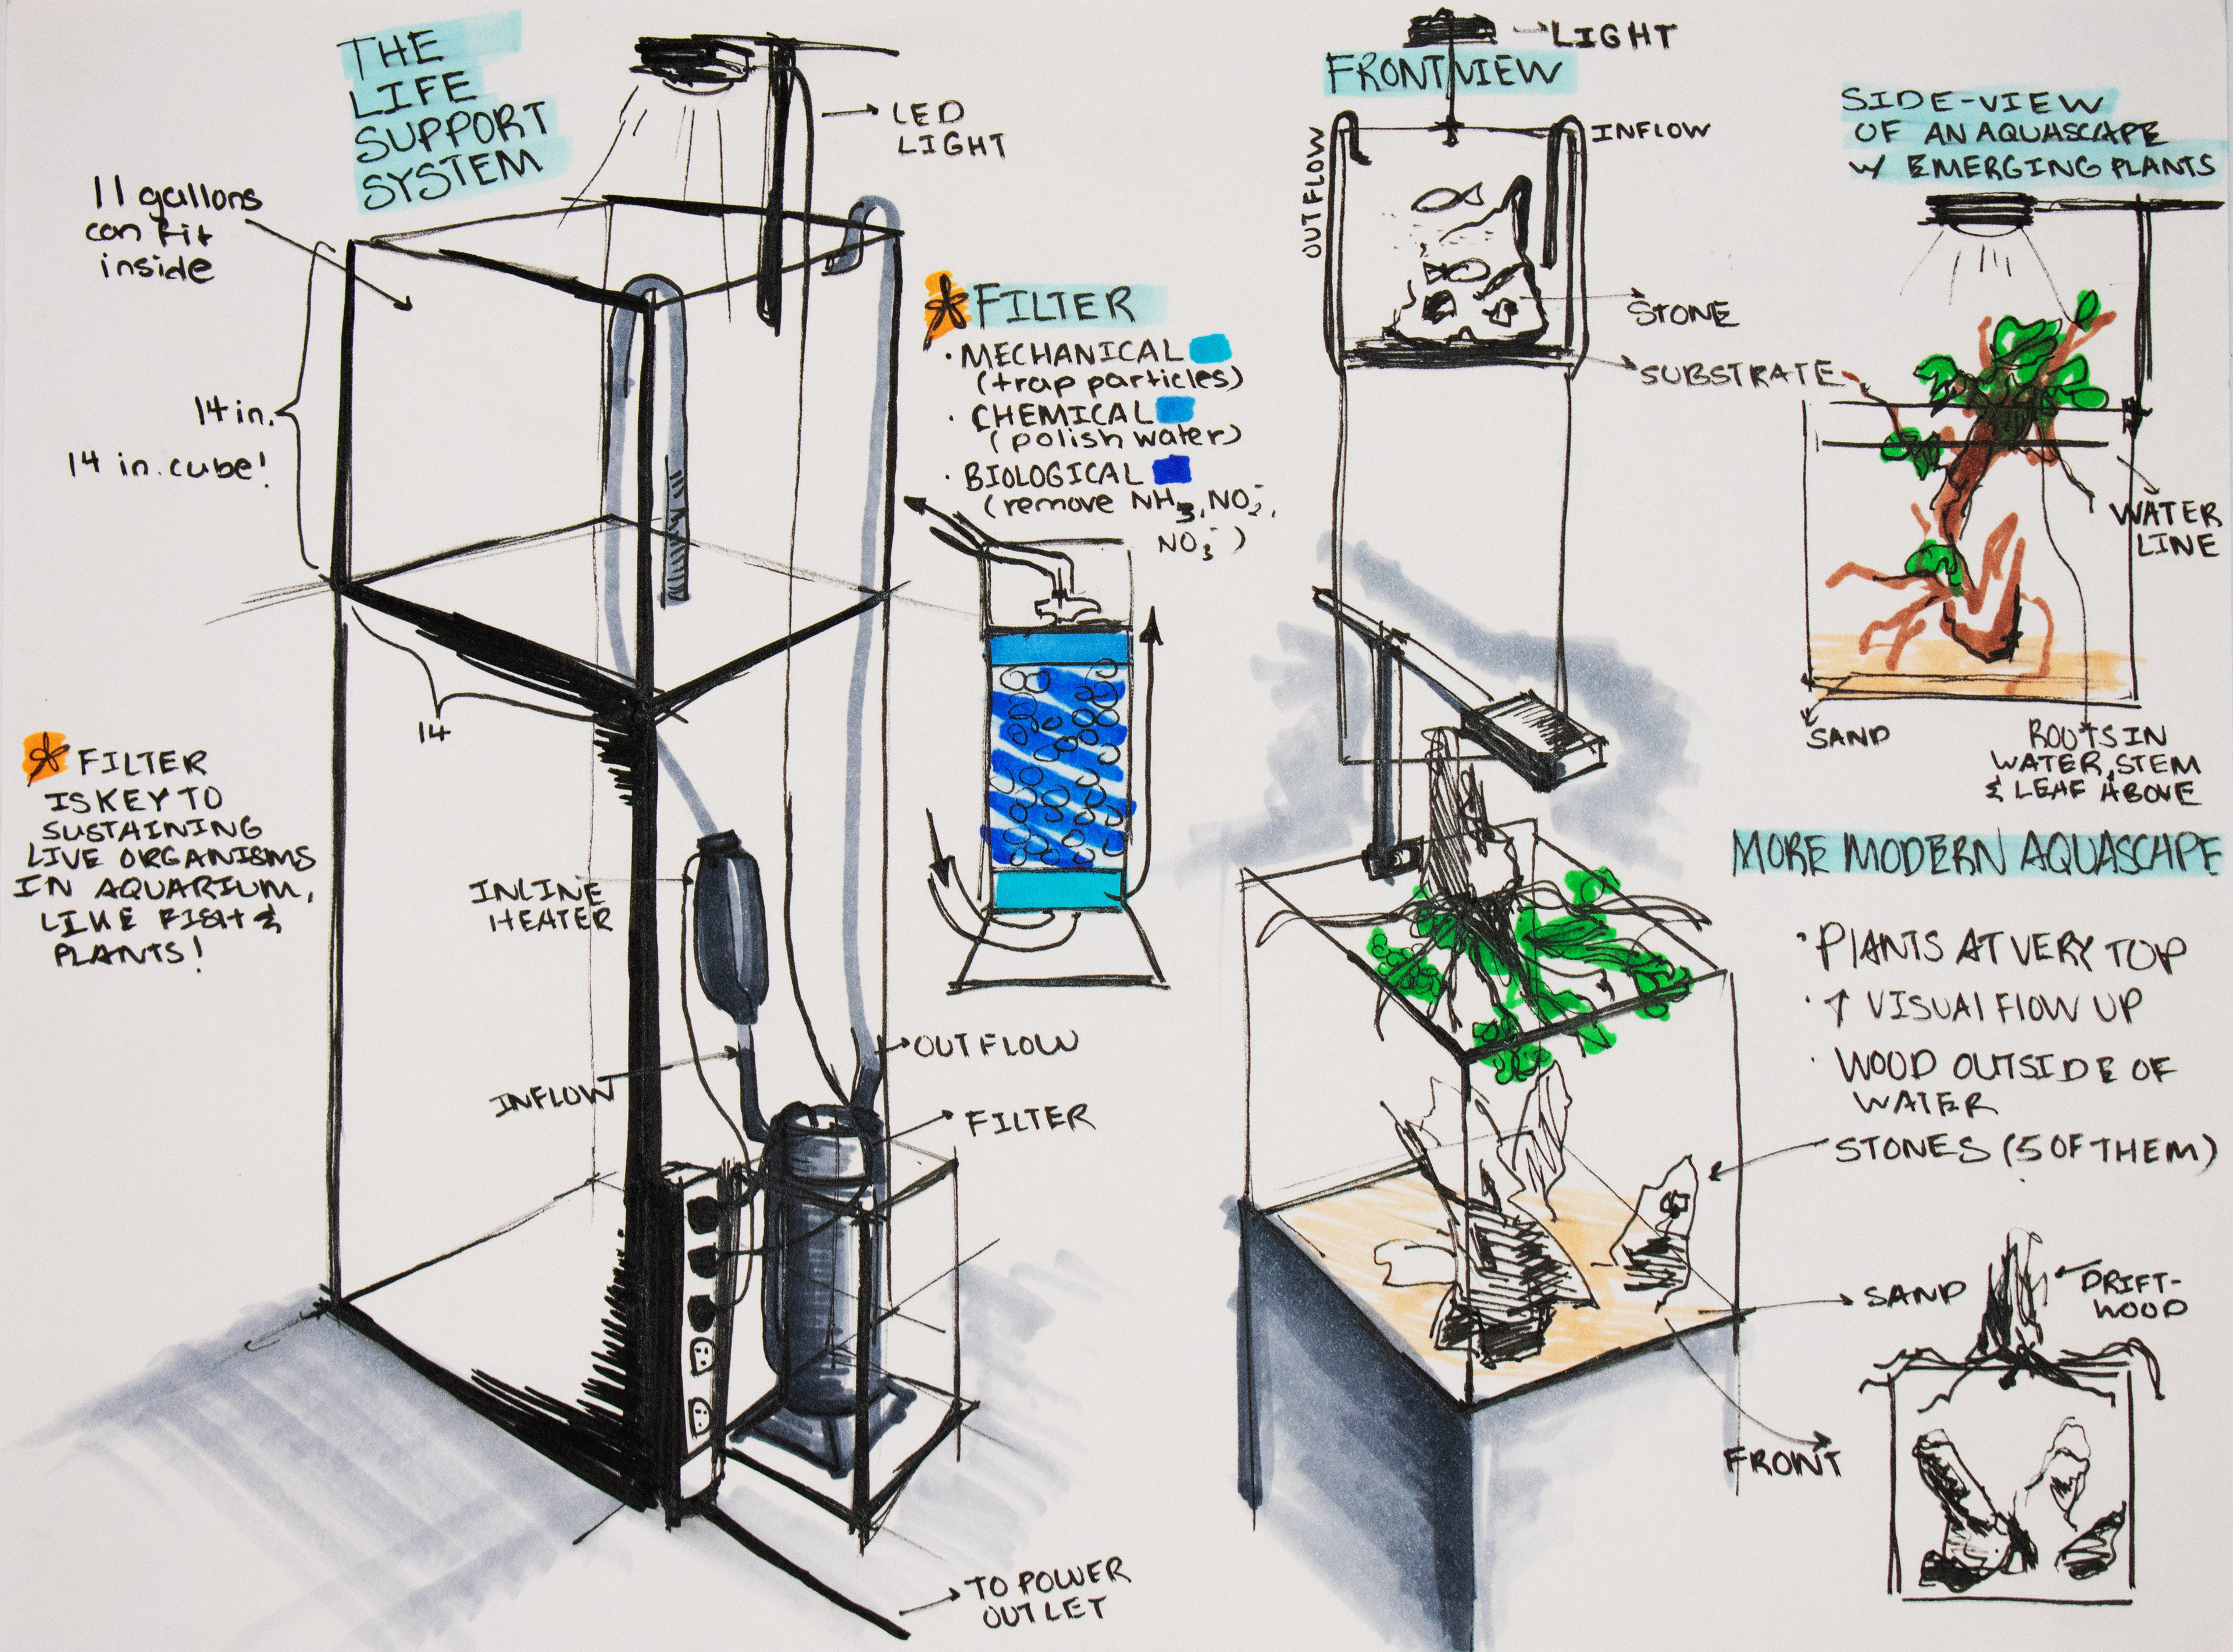 THE
LIFE
SUPPORT
SYSTEM
11 gallons
can fit
inside
14 in.
14 in. cube!
14
LED
LIGHT
* FILTER
IS KEY TO
SUSTAINING
LIVE ORGANISMS
IN AQUARIUM,
LIKE FISH &
PLANTS!
INLINE
HEATER
INFLOW
OUTFLOW
FILTER
TO POWER
OUTLET
* FILTER
· MECHANICAL
(trap particles)
· CHEMICAL
(polish water)
· BIOLOGICAL
(remove NH3, NO2-,
NO3-)
LIGHT
FRONT VIEW
OUTFLOW
INFLOW
STONE
SUBSTRATE
SIDE-VIEW
OF AN AQUASCAPE
W/ EMERGING PLANTS
WATER
LINE
SAND
ROOTS IN
WATER, STEM
& LEAF ABOVE
MORE MODERN AQUASCAPE
· PLANTS AT VERY TOP
· ↑ VISUAL FLOW UP
· WOOD OUTSIDE OF
WATER
STONES (5 OF THEM)
SAND
FRONT
DRIFT-
WOOD